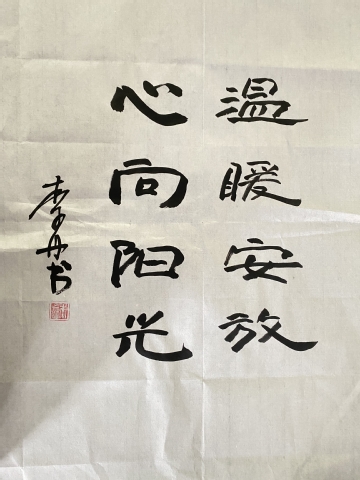 温暖安放
心向阳光
李丹书